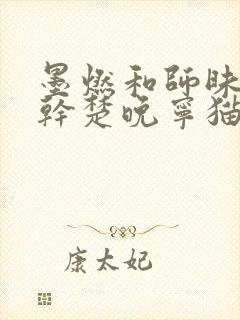 墨燃和師昧
幹楚晚寧猫
康太妃